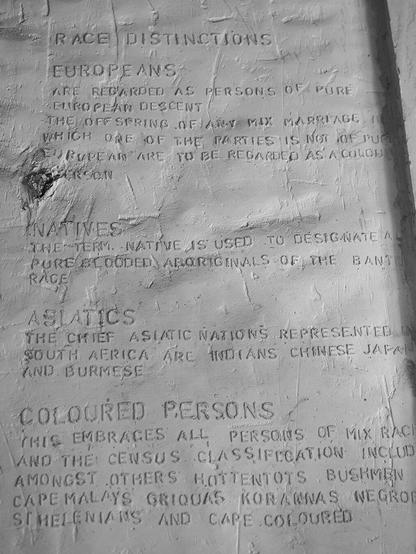 RACE DISTINCTIONS
EUROPEANS
ARE REGARDED AS PERSONS OF PURE
EUROPEAN DESCENT
THE OFFSPRING OF ANY MIX MARRIAGE IN
WHICH ONE OF THE PARTIES IS NOT OF PUR
EUROPEAN ARE TO BE REGARDED AS A COLOU
PERSON
NATIVES
THE TERM NATIVE IS USED TO DESIGNATE A
PURE BLOODED ABORIGINALS OF THE BANT
RACE
ASIATICS
THE CHIEF ASIATIC NATIONS REPRESENTED
SOUTH AFRICA ARE INDIANS CHINESE JAPA
AND BURMESE
COLOURED PERSONS
THIS EMBRACES ALL PERSONS OF MIX RACE
AND THE CENSUS CLASSIFICATION INCLUD
AMONGST OTHERS HOTTENTOTS BUSHMEN
CAPE MALAYS GRIQUAS KORANNAS NEGROE
ST HELENIANS AND CAPE COLOURED